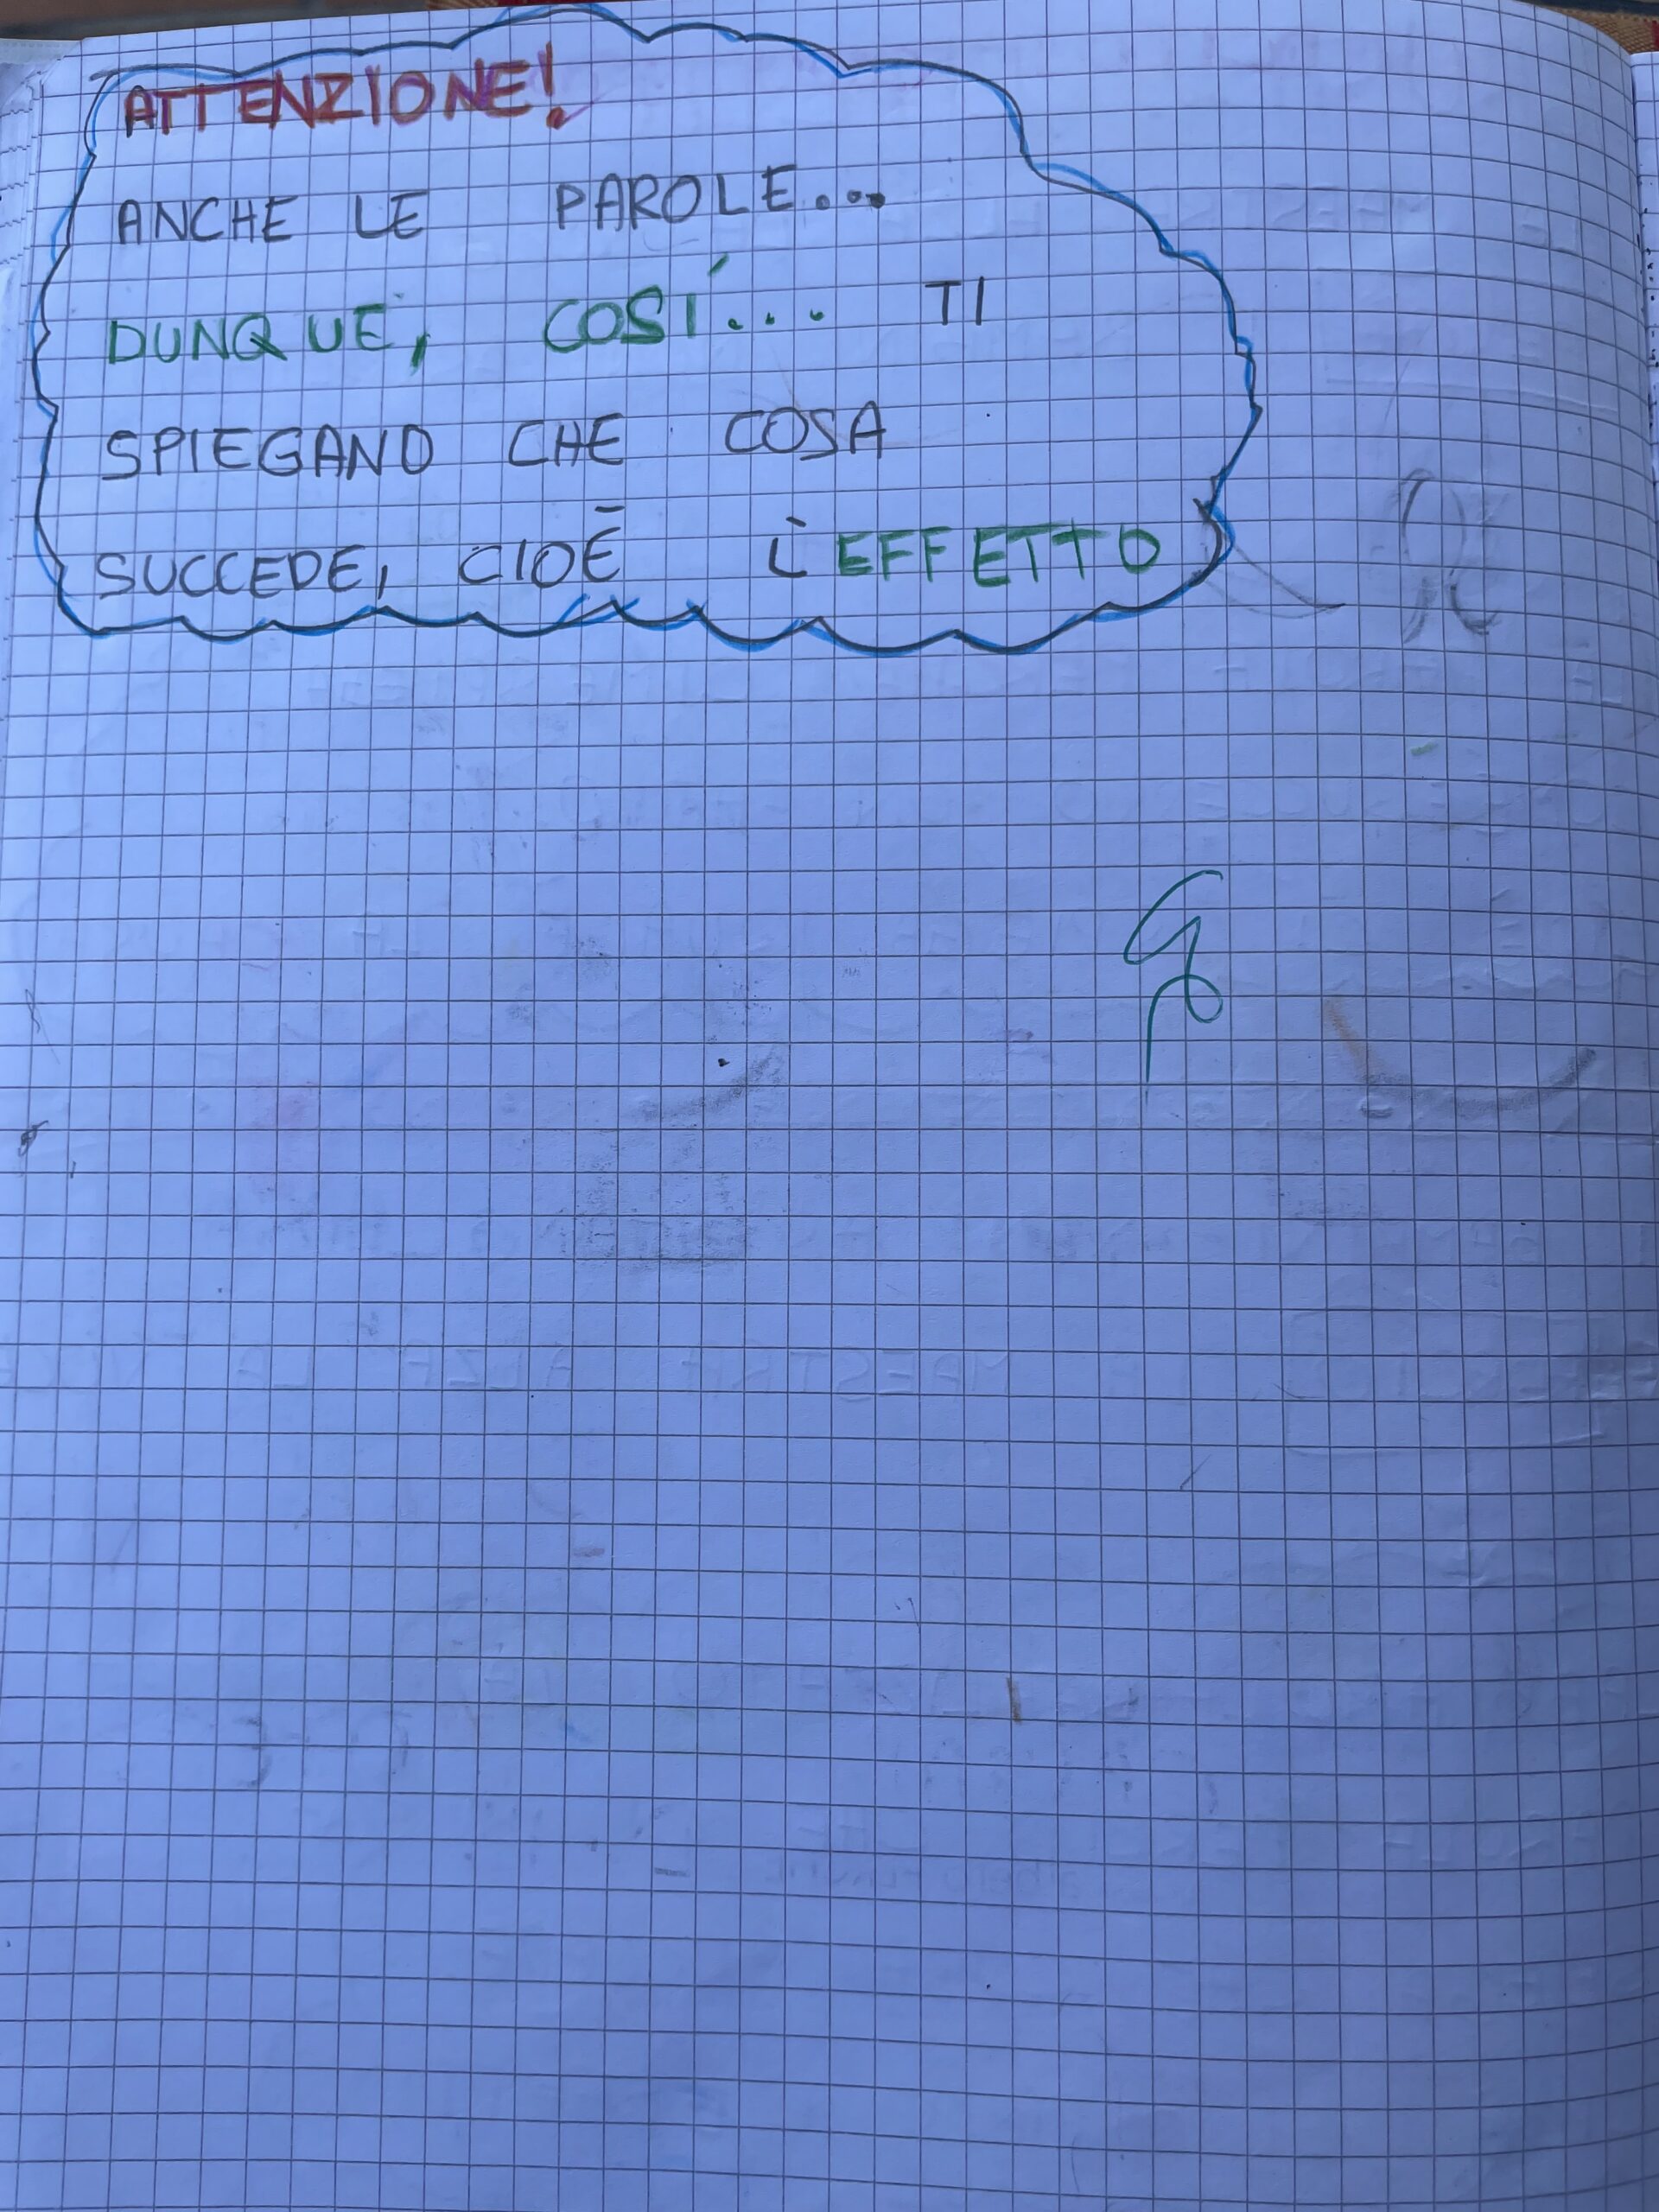 ATTENZIONE!
ANCHE LE PAROLE...
DUNQUE, COSÍ... TI
SPIEGANO CHE COSA
SUCCEDE, CIOĒ L'EFFETTO